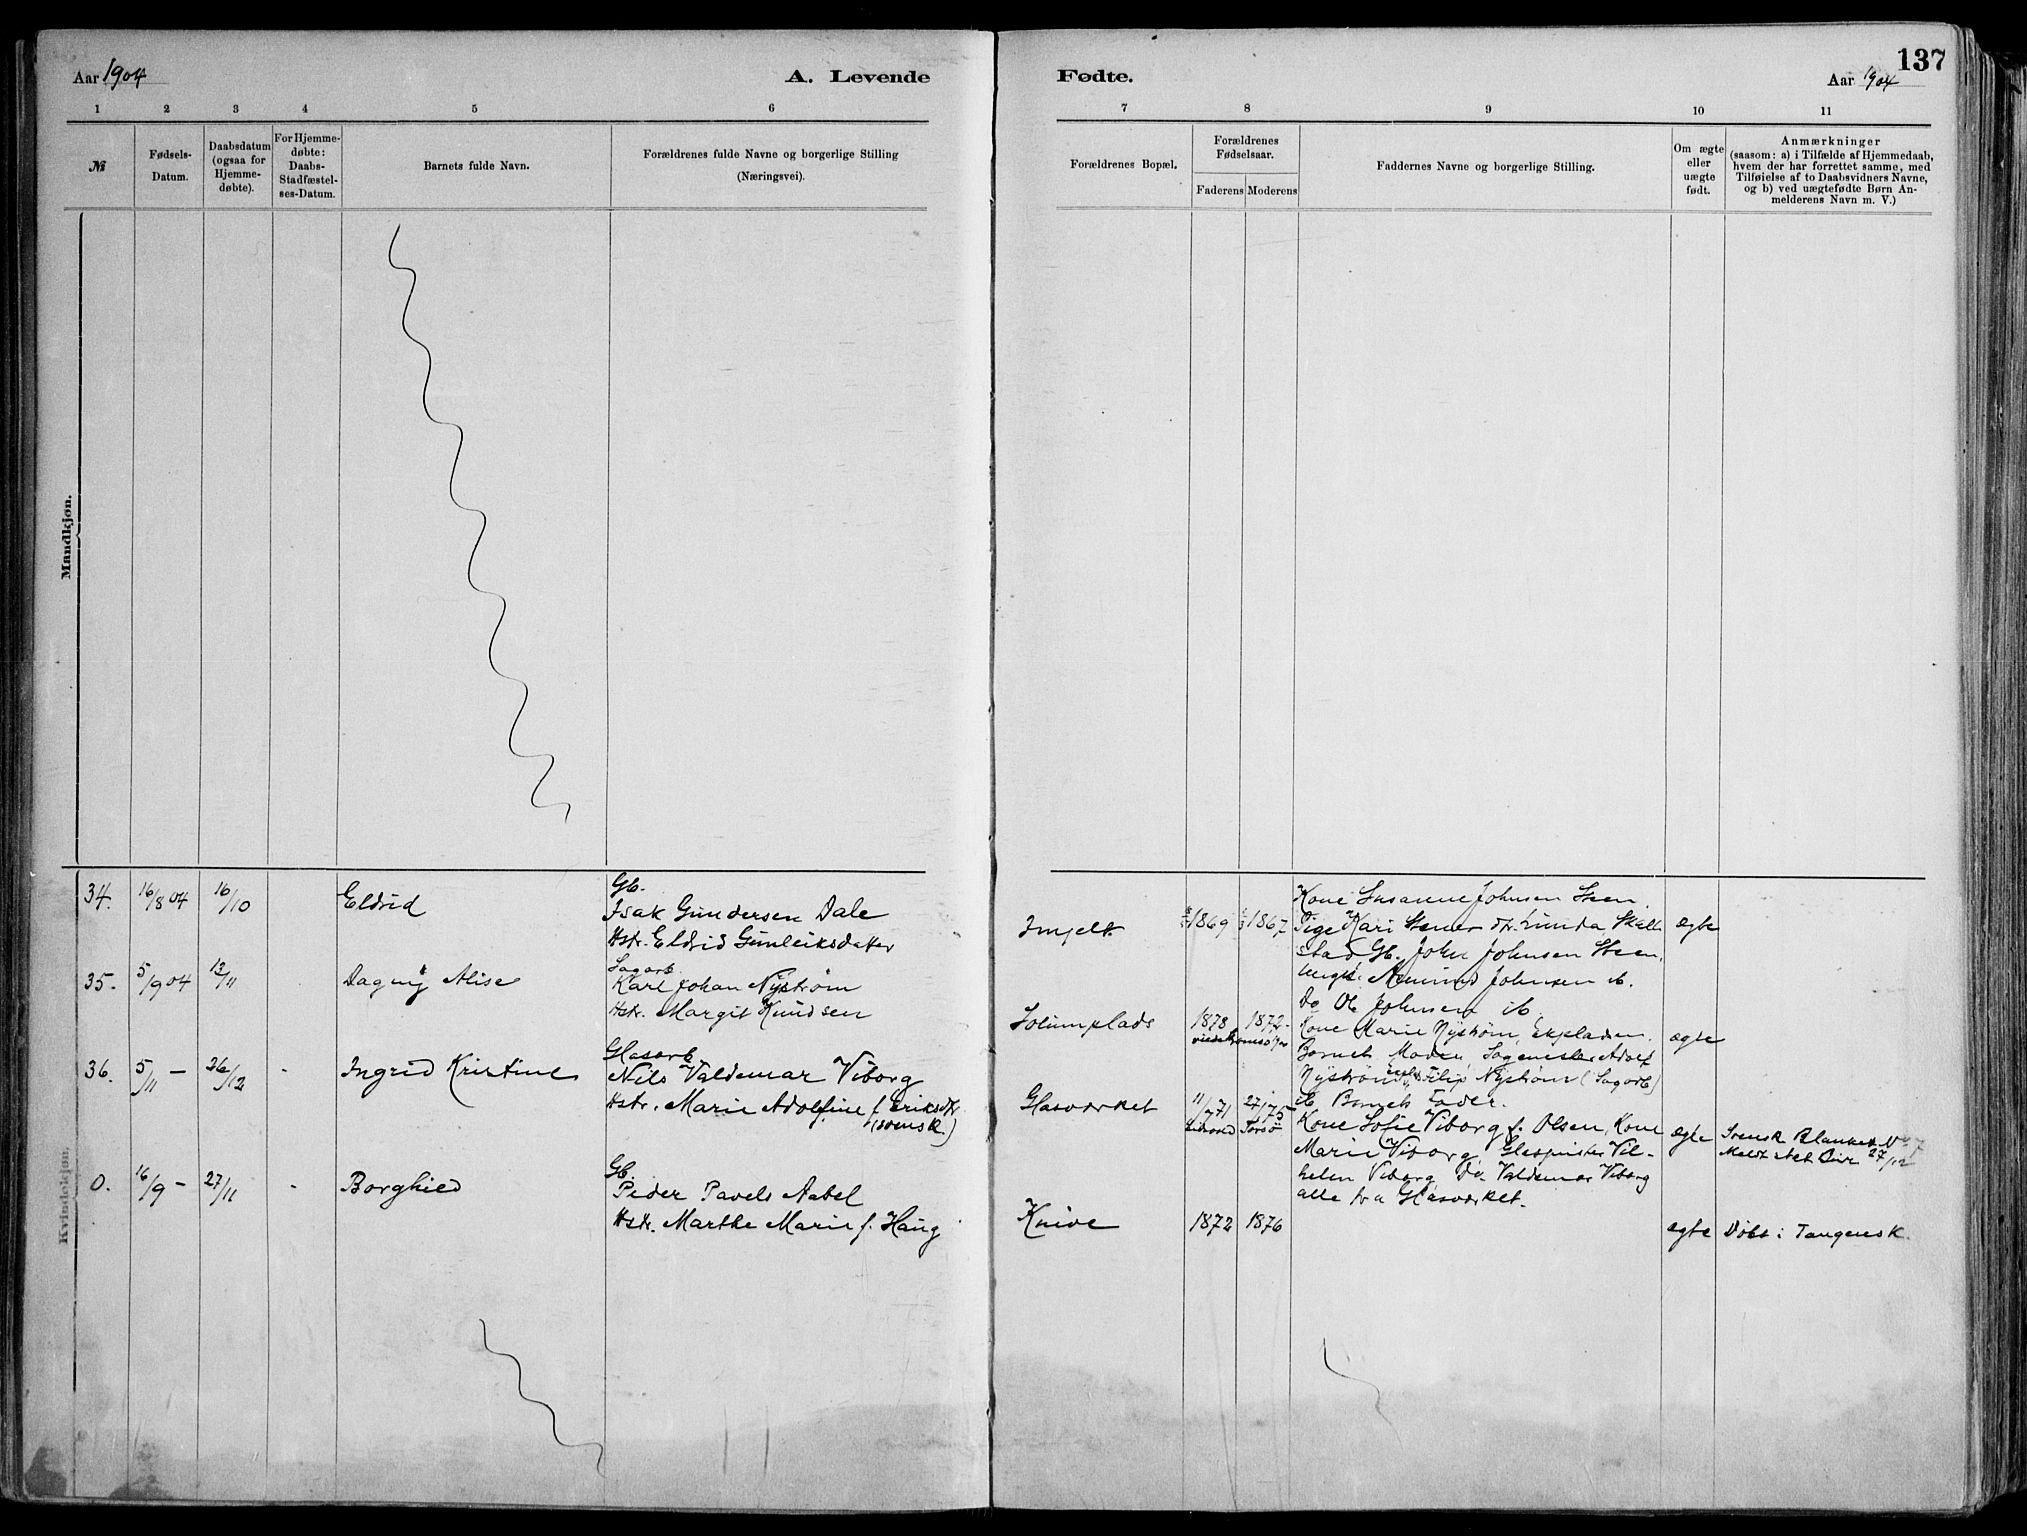 137
Aar 1904
A. Levende
Fødte.
Aar 1904
1 2 3 4 5 6 7 8 9 10 11
№
Fødsels-
Datum.
Daabsdatum
(ogsaa for
Hjemme-
døbte).
For Hjemme-
døbte:
Daabs-
Stadfæstel-
ses-Datum.
Barnets fulde Navn.
Forældrenes fulde Navne og borgerlige Stilling
(Næringsvei).
Forældrenes Bopæl.
Forældrenes
Fødselsaar.
Faderens Moderens
Faddernes Navne og borgerlige Stilling.
Om ægte
eller
uægte
født.
Anmærkninger
(saasom: a) i Tilfælde af Hjemmedaab,
hvem der har forrettet samme, med
Tilføielse af to Daabsvidners Navne,
og b) ved uægtefødte Børn An-
melderens Navn m. V.)
Mandkjøn.
Kvindekjøn.
34. 16/8 04 16/10 Eldrid
Gb.
Isak Gundersen Dale
Hstr. Eldrid Gunleiksdatter
1869 1867
Kone Susanne Johnsen Steen
Pige Kari
stad Gb. John Johnsen Steen.
Johnsen ib.
Do Ole Johnsen ib.
ægte
35. 5/9 04 13/11 Dagny Alise
Sagarb.
Karl Johan Nystrøm
Hstr. Margit Knudsen
Solumplads
1878 1872
Kone Marie Nystrøm,
Barnets Moder, Sagmester Adolf
Nystrøm, Filip Nystrøm (Sagarb)
& Barnets Fader.
ægte
36. 5/11 – 26/12 - Ingrid Kristine
Glasarb
Nils Valdemar Viborg
Hstr. Marie Adolfine f. Eriksdtr
(svensk.)
Glasværket
11/7 71 27/1 75
Torsø
Kone Sofie Viborg f. Olsen, Kone
Marie Viborg, Glaspuster Vil-
helm Viborg, Do Valdemar Viborg
alle fra Glasværket.
ægte
Svensk Blanket
27/12
0. 16/9 – 27/11 - Borghild
Gb.
Peder Pavels Aabel
Hstr. Marthe Marie f. Haug
Knive
1872 1876
ægte
Døbt i Tangensk.